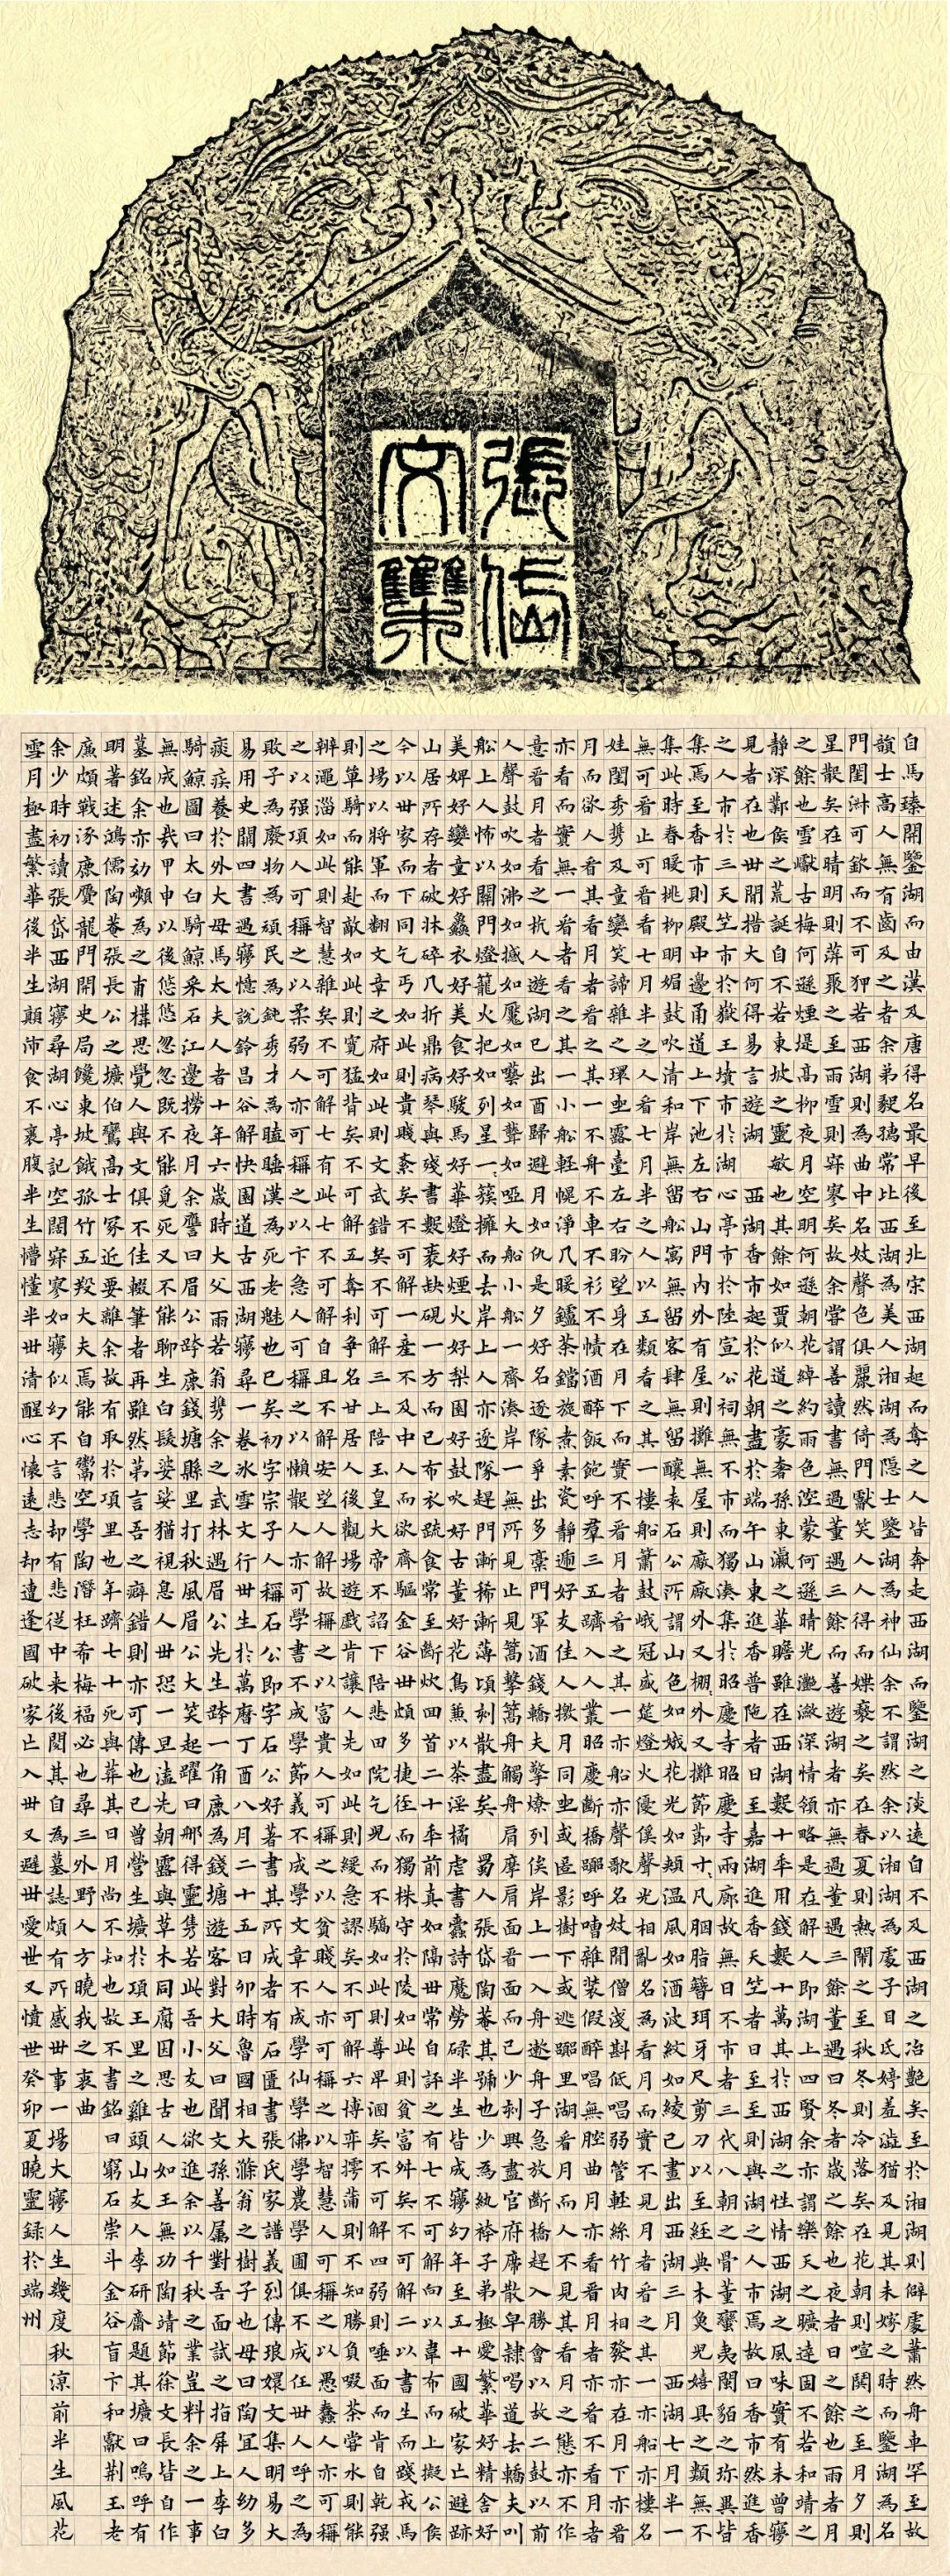 張岱
文集
自馬臻開鑒湖而由漢及唐得名最早後至北宋西湖起而奪之人皆奔走西湖而鑒湖之淡遠自不及西湖之冶艷矣至於湘湖則僻處蕭然舟車罕至故
韻士高人無有齒及之者余弟毅孺常比西湖為美人湘湖為隱士鑒湖為神仙余不謂然余以湘湖為處子目氏婷羞澁猶及見其未嫁之時而鑒湖為名
門閨淋可欽而不可狎若西湖則為曲中名妓聲色俱麗然倚門獻笑人人得而媟褻之矣在春夏則熱鬧之至秋冬則冷落矣在花朝則喧鬨之至月夕則
星散矣在晴明則萍聚之至雨雪則寂寥矣故余嘗謂善讀書無過董遇三餘而善遊湖者亦無過董遇三餘董遇曰冬者歲之餘也夜者日之餘也雨者月
之餘也雪巘古梅何遜煙堤高柳夜月空明何遜朝花綽約雨色涳蒙何遜晴光灩瀲深情領略是在解人即湖上四賢余亦謂樂天之曠達固不若和靖之
靜深鄴侯之荒誕自不若東坡之靈敏也其餘如賈似道之豪奢孫東瀛之華贍雖在西湖數十年用錢數十萬其於西湖之性情西湖之風味實有未曾夢
見者在也世間措大何得易言遊湖 西湖香市起於花朝盡於端午山東進香普陀者日至嘉湖進香天竺者日至至則與湖之人市焉故曰香市然進香
之人市於三天竺市於嶽王墳市於湖心亭市於陸宣公祠無不市而獨湊集於昭慶寺昭慶寺兩廊故無日不市者三代八朝之骨董蠻夷閩貊之珍異皆
集焉至香市則殿中邊甬道上下池左右山門內外有屋則攤無屋則廠廠外又棚棚外又攤節節寸寸凡胭脂簪珥牙尺剪刀以至經典木魚兒嬉具之類無不
集此時春暖桃柳明媚鼓吹清和岸無留船寓無留客肆無留釀袁石公所謂山色如娥花光如頰溫風如酒波紋如綾已畫出西湖三月 西湖七月半一
無可看止可看看七月半之人看七月半之人以五類看之其一樓船簫鼓峨冠盛筵燈火優傒聲光相亂名為看月而實不見月者看之其一亦船亦樓名
娃閨秀携及童孌笑諦雜之環坐露臺左右盼望身在月下而實不看月者看之其一亦船亦聲歌名妓閒僧淺斟低唱弱管輕絲竹肉相發亦在月下亦看
月而欲人看其看月者看之其一不舟不車不衫不幘酒醉飯飽呼羣三五躋入人叢昭慶斷橋呼嘈雜裝假醉唱無腔曲月亦看看月者亦看不看月者
亦看而實無一看者看之其一小船輕幌淨几暖鑪茶鐺旋煮素瓷靜遞好友佳人邀月同坐或匿影樹下或逃里湖看月而人不見其看月之態亦不作
意看月者看之杭人遊湖已出酉歸避月如仇是夕好名逐隊爭出多稾門軍酒錢轎夫擎燎列俟岸上一入舟舟子急放斷橋趕入勝會以故二鼓以前
人聲鼓吹如沸如撼如魘如囈如聾如啞大船小船一齊湊岸一無所見止見篙擊篙舟觸舟肩摩肩面看面而已少刺興盡官府席散皁隸喝道去轎夫叫
船上人怖以關門燈籠火把如列星一一簇擁而去岸上人亦逐隊趕門漸稀漸薄頃刻散盡矣 蜀人張岱陶菴其號也少為紈袴子弟極愛繁華好精舍
美婢好孌童好鱻衣好美食好駿馬好華燈好煙火好梨園好鼓吹好古董好花鳥兼以茶淫橘虐書蠹詩魔勞碌半生皆成夢幻年至五十國破家亡避跡
山居所存者破牀碎几折鼎病琴與殘書數裹缺硯一方而已布衣疏食常至斷炊回首二十年前真如隔世常自評之有七不可解向以韋布而上擬公侯
今以世家而下同乞丐如此則貴賤紊矣不可解一產不及中人而欲齊驅金谷世頗多捷徑而獨株守於陵如此則貧富舛矣不可解二以書生而踐戎馬
之場以將軍而翻文章之府如此則文武錯矣不可解三上陪玉皇大帝不諂下陪悲田院乞兒而不驕如此則尊卑溷矣不可解四弱則唾面而肯自乾強
則單騎而能赴敵如此則寬猛背矣不可解五奪利爭名甘居人後觀場遊戲肯讓人先如此則緩急謬矣不可解六博弈摴蒲則不知勝負啜茶嘗水則能
辨澠淄如此則智慧雜矣不可解七有此七不可解自且不解安望人解故稱之以富貴人可稱之以貧賤人亦可稱之以智慧人可稱之以愚蠢人亦可稱
之以強項人可稱之以柔弱人亦可稱之以卞急人可稱之以懶散人亦可學書不成學節義不成學文章不成學仙學佛學農學圃俱不成任世人呼之為
敗子為廢物為頑民為鈍秀才為瞌睡漢為死老魅也已矣初字宗子人稱石公即字石公好著書其所成者有石匱書張氏家譜義烈傳琅嬛文集明易大
易用史闕四書遇夢憶說鈴昌谷解快園道古西湖夢尋一卷冰雪文行世生於萬曆丁酉八月二十五日卯時魯國相大滌翁之樹子也母曰陶宜人幼多
痰疾養於外大母馬太夫人者十年六歲時大父雨若翁攜余之武林遇眉公先生跨一角鹿為錢塘遊客對大父曰聞文孫善屬對吾面試之指屏上李白
騎鯨圖曰太白騎鯨采石江邊撈夜月余應曰眉公跨鹿錢塘縣里打秋風眉公大笑起躍曰那得靈雋若此吾小友也欲進余以千秋之業豈料余之一事
無成也哉甲申以後悠悠忽忽既不能覓死又不能聊生白髮婆娑猶視息人世恐一旦溘先朝露與草木同腐因思古人如王無功陶靖節徐文長皆自作
墓銘余亦効嚬為之甫構思覺人與文俱不佳輟筆者再雖然第言吾之癖錯則亦可傳也已曾營生壙於項王里之雞頭山友人李研齋題其壙曰嗚呼有
明著述鴻儒陶菴張長公之壙伯鸞高士冢近要離余故有取於項里也年躋七十死與葬其日月尚不知也故不書銘曰窮石崇斗金谷盲卞和獻荊玉老
廉頗戰涿鹿贗龍門開史局饞東坡餓孤竹五羖大夫焉能自鬻空學陶潛枉希梅福必也尋三外野人方曉我之衷曲
余少時初讀張岱西湖夢尋湖心亭記空闊寂寥如夢似幻不言悲却有悲從中來後聞其自為墓誌頗有所感世事一場大夢人生幾度秋涼前半生風花
雪月極盡繁華後半生顛沛食不裹腹半生懵懂半世清醒心懷遠志却遭逢國破家亡入世又避世愛世又憤世世癸卯夏曉靈録於端州